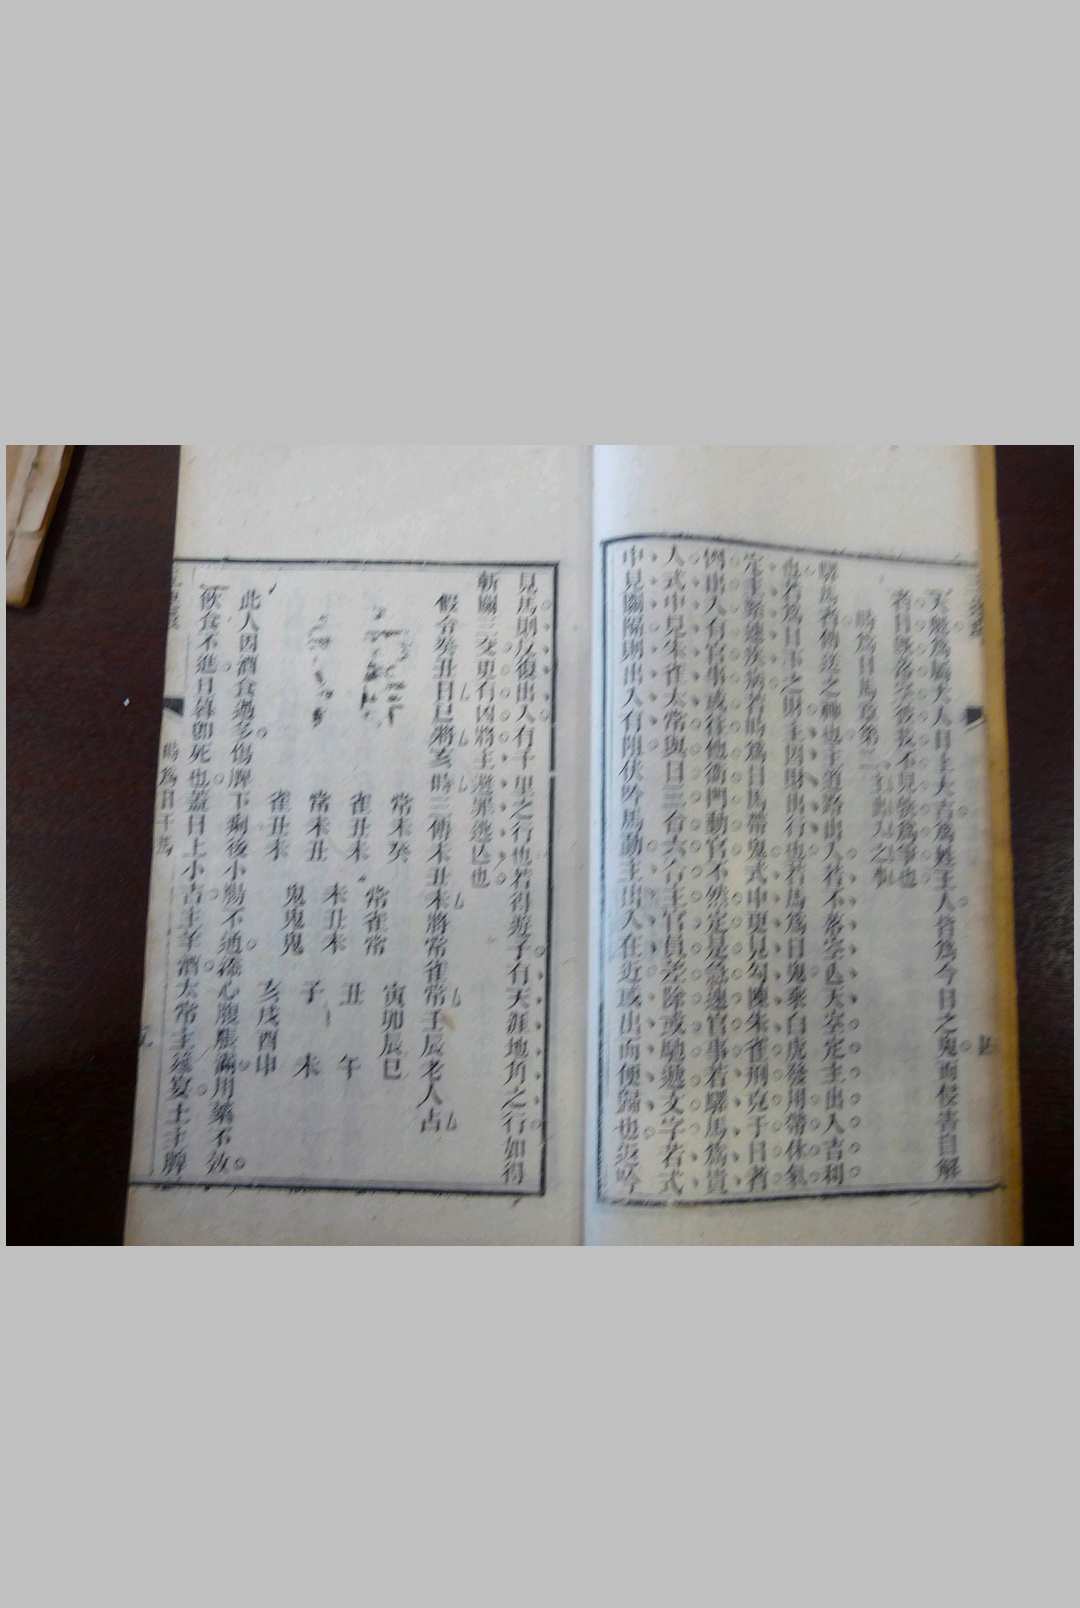 天魁爲屬大人日上大吉爲姓主人皆爲今日之鬼而侵害自解
者日既落空彼我不見欲爲爭也
時爲日馬章第二
驛馬者傳送之神也主道路出入若不落空亡天空定主出入吉利
也若爲日下之財主因財出行也若馬爲日鬼乘白虎發用帶休氣
定主緊速疾病若時爲日馬帶鬼式中更見勾陳朱雀刑克于日者
例出入有官事或往他衙門動官不然定是急速官事若驛馬爲貴
人式中見朱雀太常與日三合六合主官員差除或馳遞文字若式
中見關隔則出入有阻伏吟馬動主出入在近或出而便歸也返吟
見馬則反復出入有千里之行也若得遊子有天涯地角之行如得
斬關三交更有凶將主遊罪逃亡也
假令癸丑日巳將亥時三傳未丑未將常雀常壬辰老人占
常未癸 常雀常 寅卯辰巳
雀丑未 未丑未 丑 午
常未丑 鬼鬼鬼 子 未
雀丑未 亥戌酉申
此人因酒食過多傷脾下痢後小腸不通添心腹脹滿用藥不效
飲食不進日暮卽死也蓋日上小吉主羊酒太常主筵宴土主脾
時爲日干馬